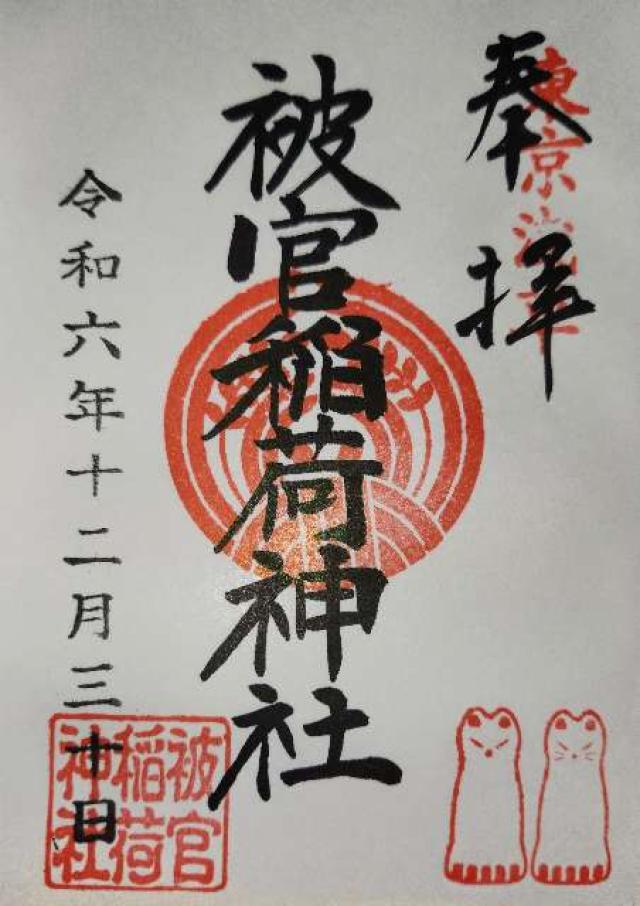 奉拝
東京浅草
被官稲荷神社
令和六年十二月三十日
被官
稲荷
神社